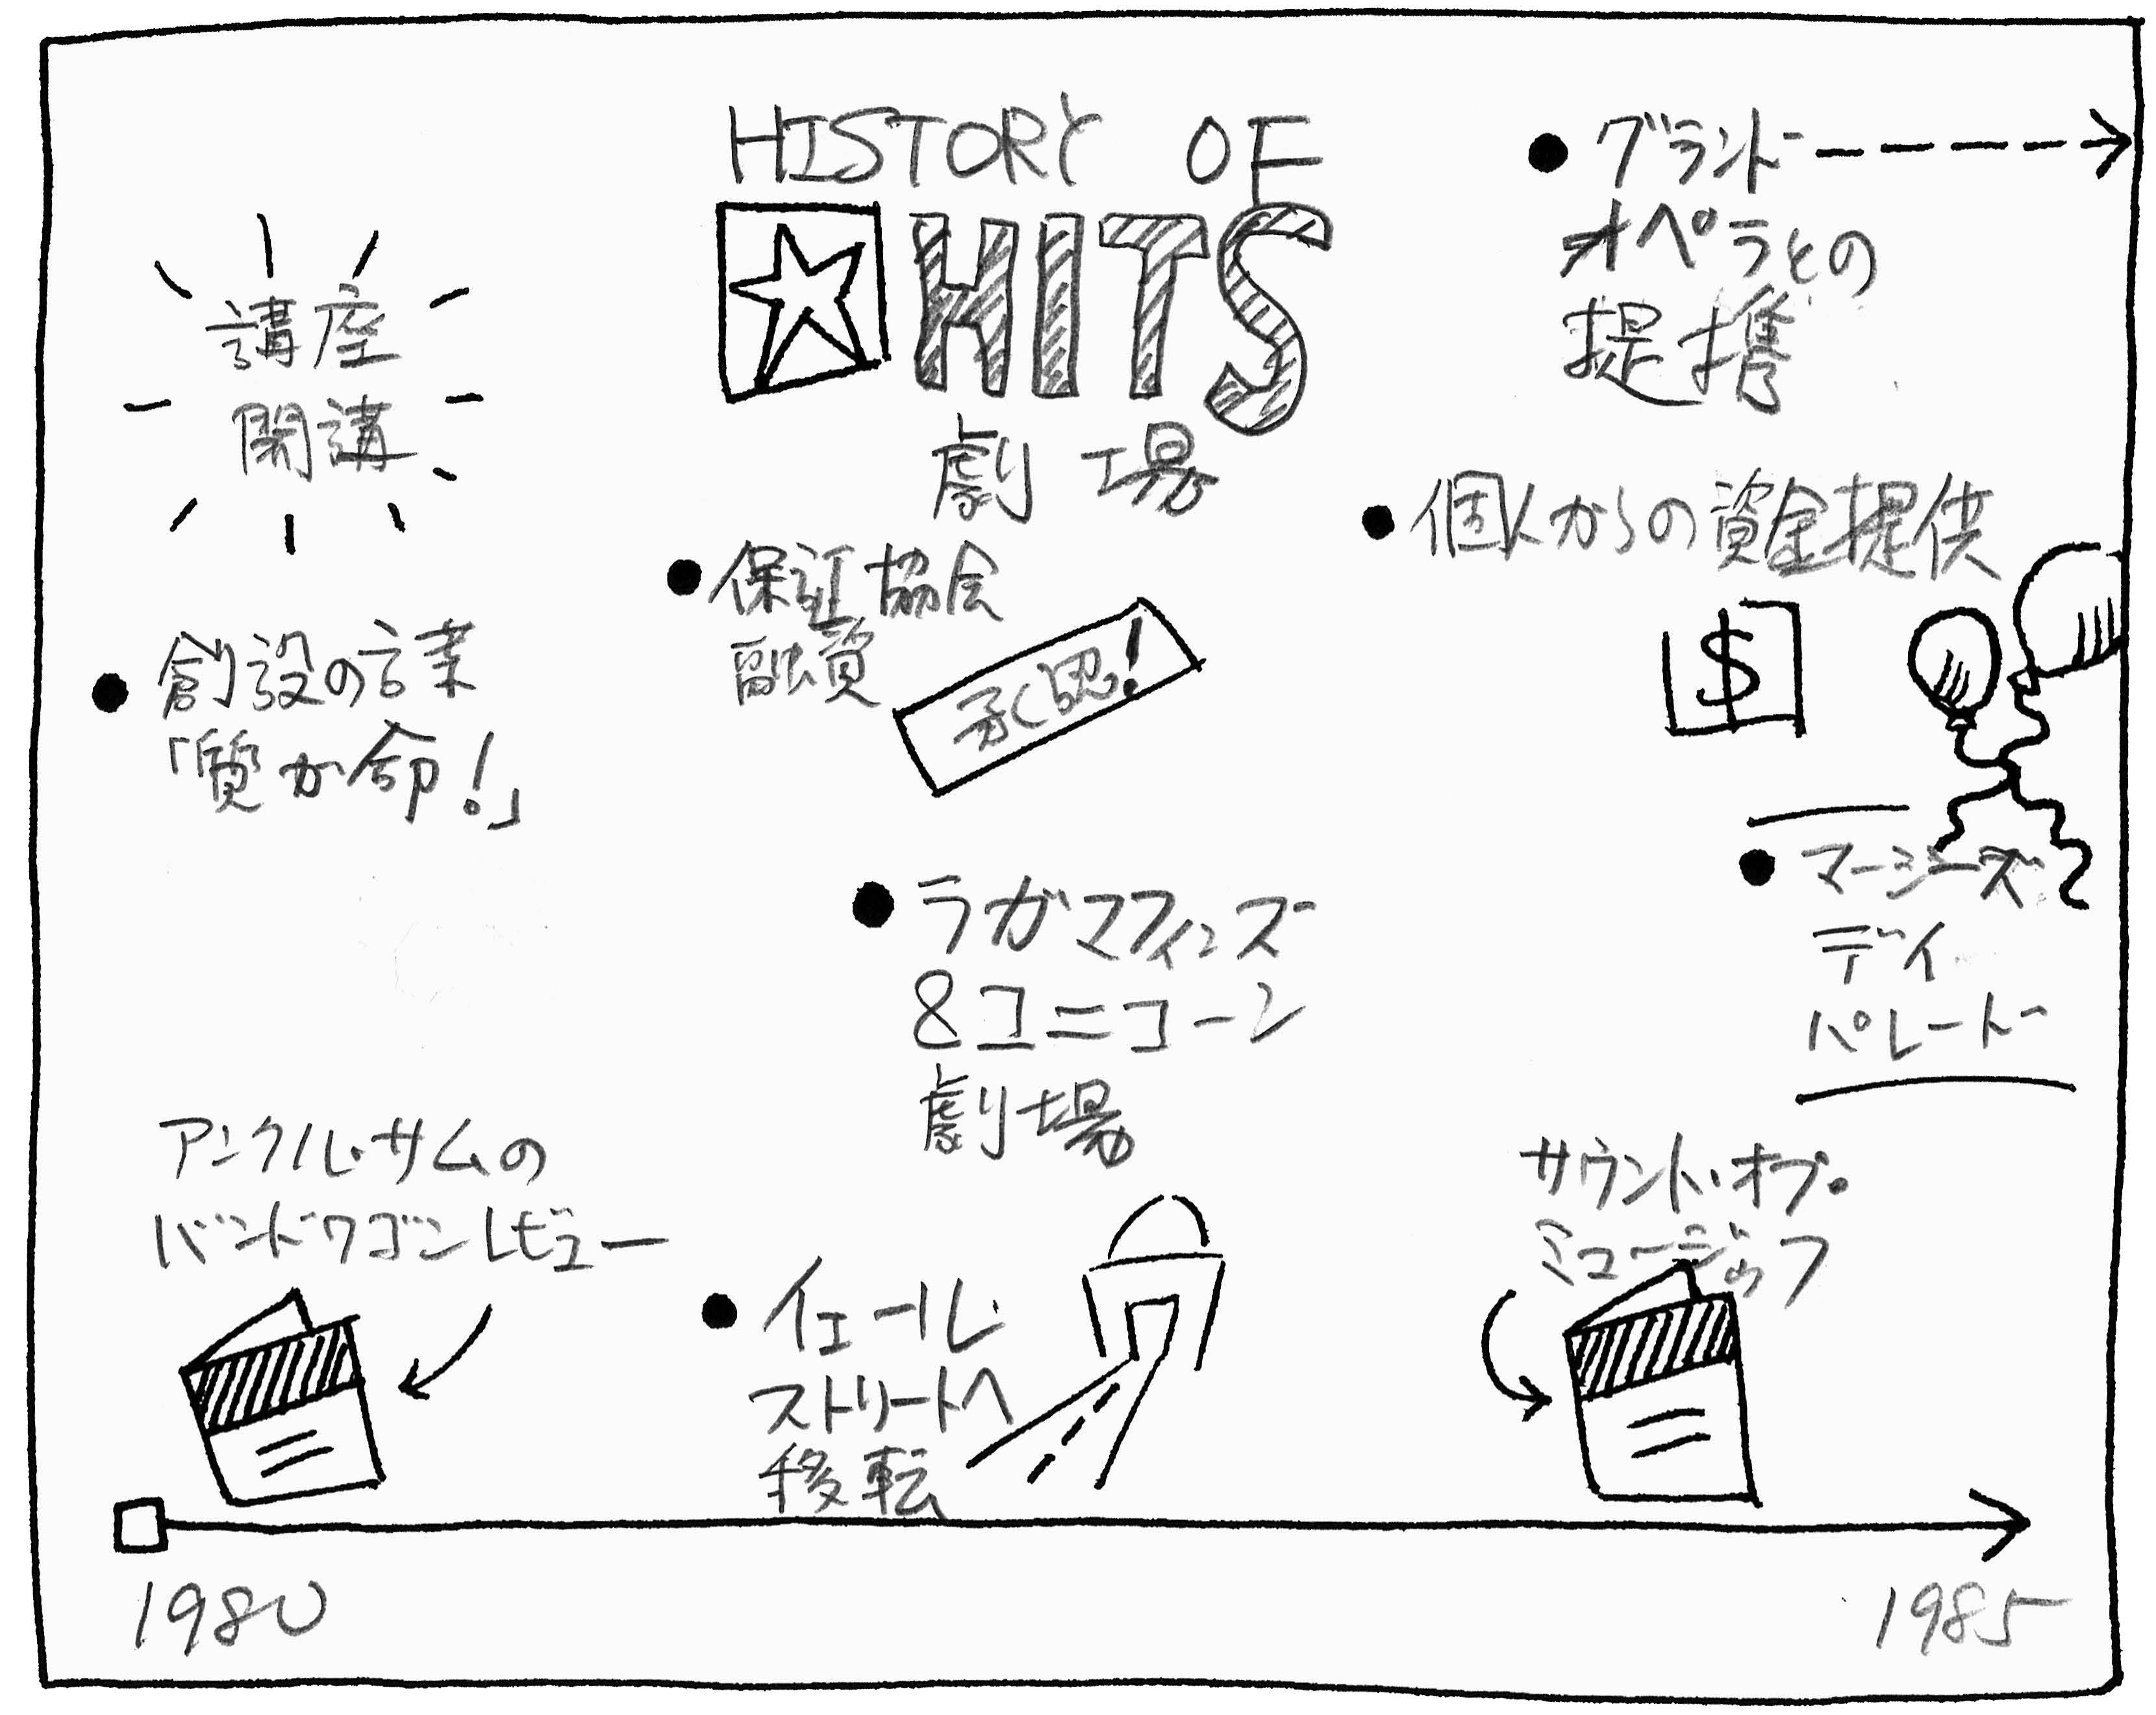 HISTORY OF
HITS
劇場
講座
開講
● 創設の言葉
「質が命!」
● 保証協会
融資
承認!
● グランド
オペラとの
提携
● 個人からの資金提供
$
● ラガマフィンズ
&ユニコーン
劇場
● マージーズ
デイ
パレード
アンクル・サムの
バンドワゴンレビュー
● イェール
ストリートへ
移転
サウンド・オブ・
ミュージック
1980
1985